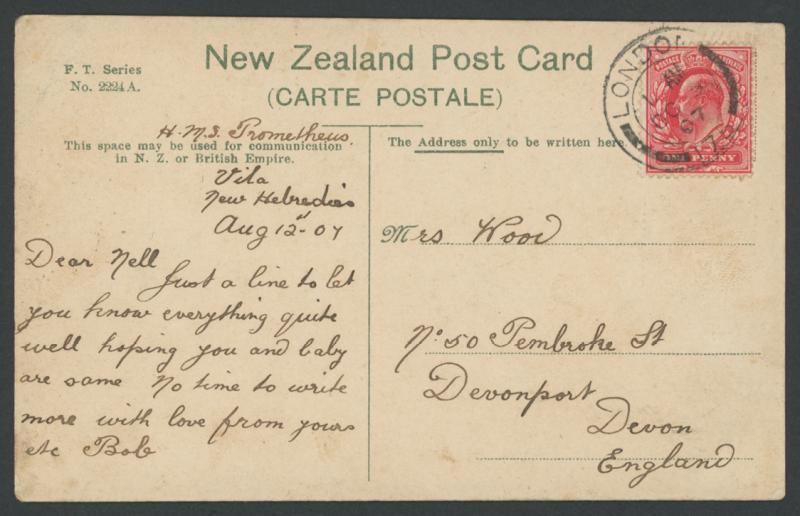 F. T. Series
No. 2224A.
New Zealand Post Card
(CARTE POSTALE)
H.M.S. Prometheus.
This space may be used for communication
in N. Z. or British Empire.
Vila
New Hebredies
Aug 12st 07
Dear Nell
Just a line to let
you know everything quite
well hoping you and baby
are same No time to write
more with love from yours
etc Bob
The Address only to be written here.
Mrs Wood
No 50 Pembroke St
Devonport
Devon
England
LONDON
07
POSTAGE REVENUE
ONE PENNY